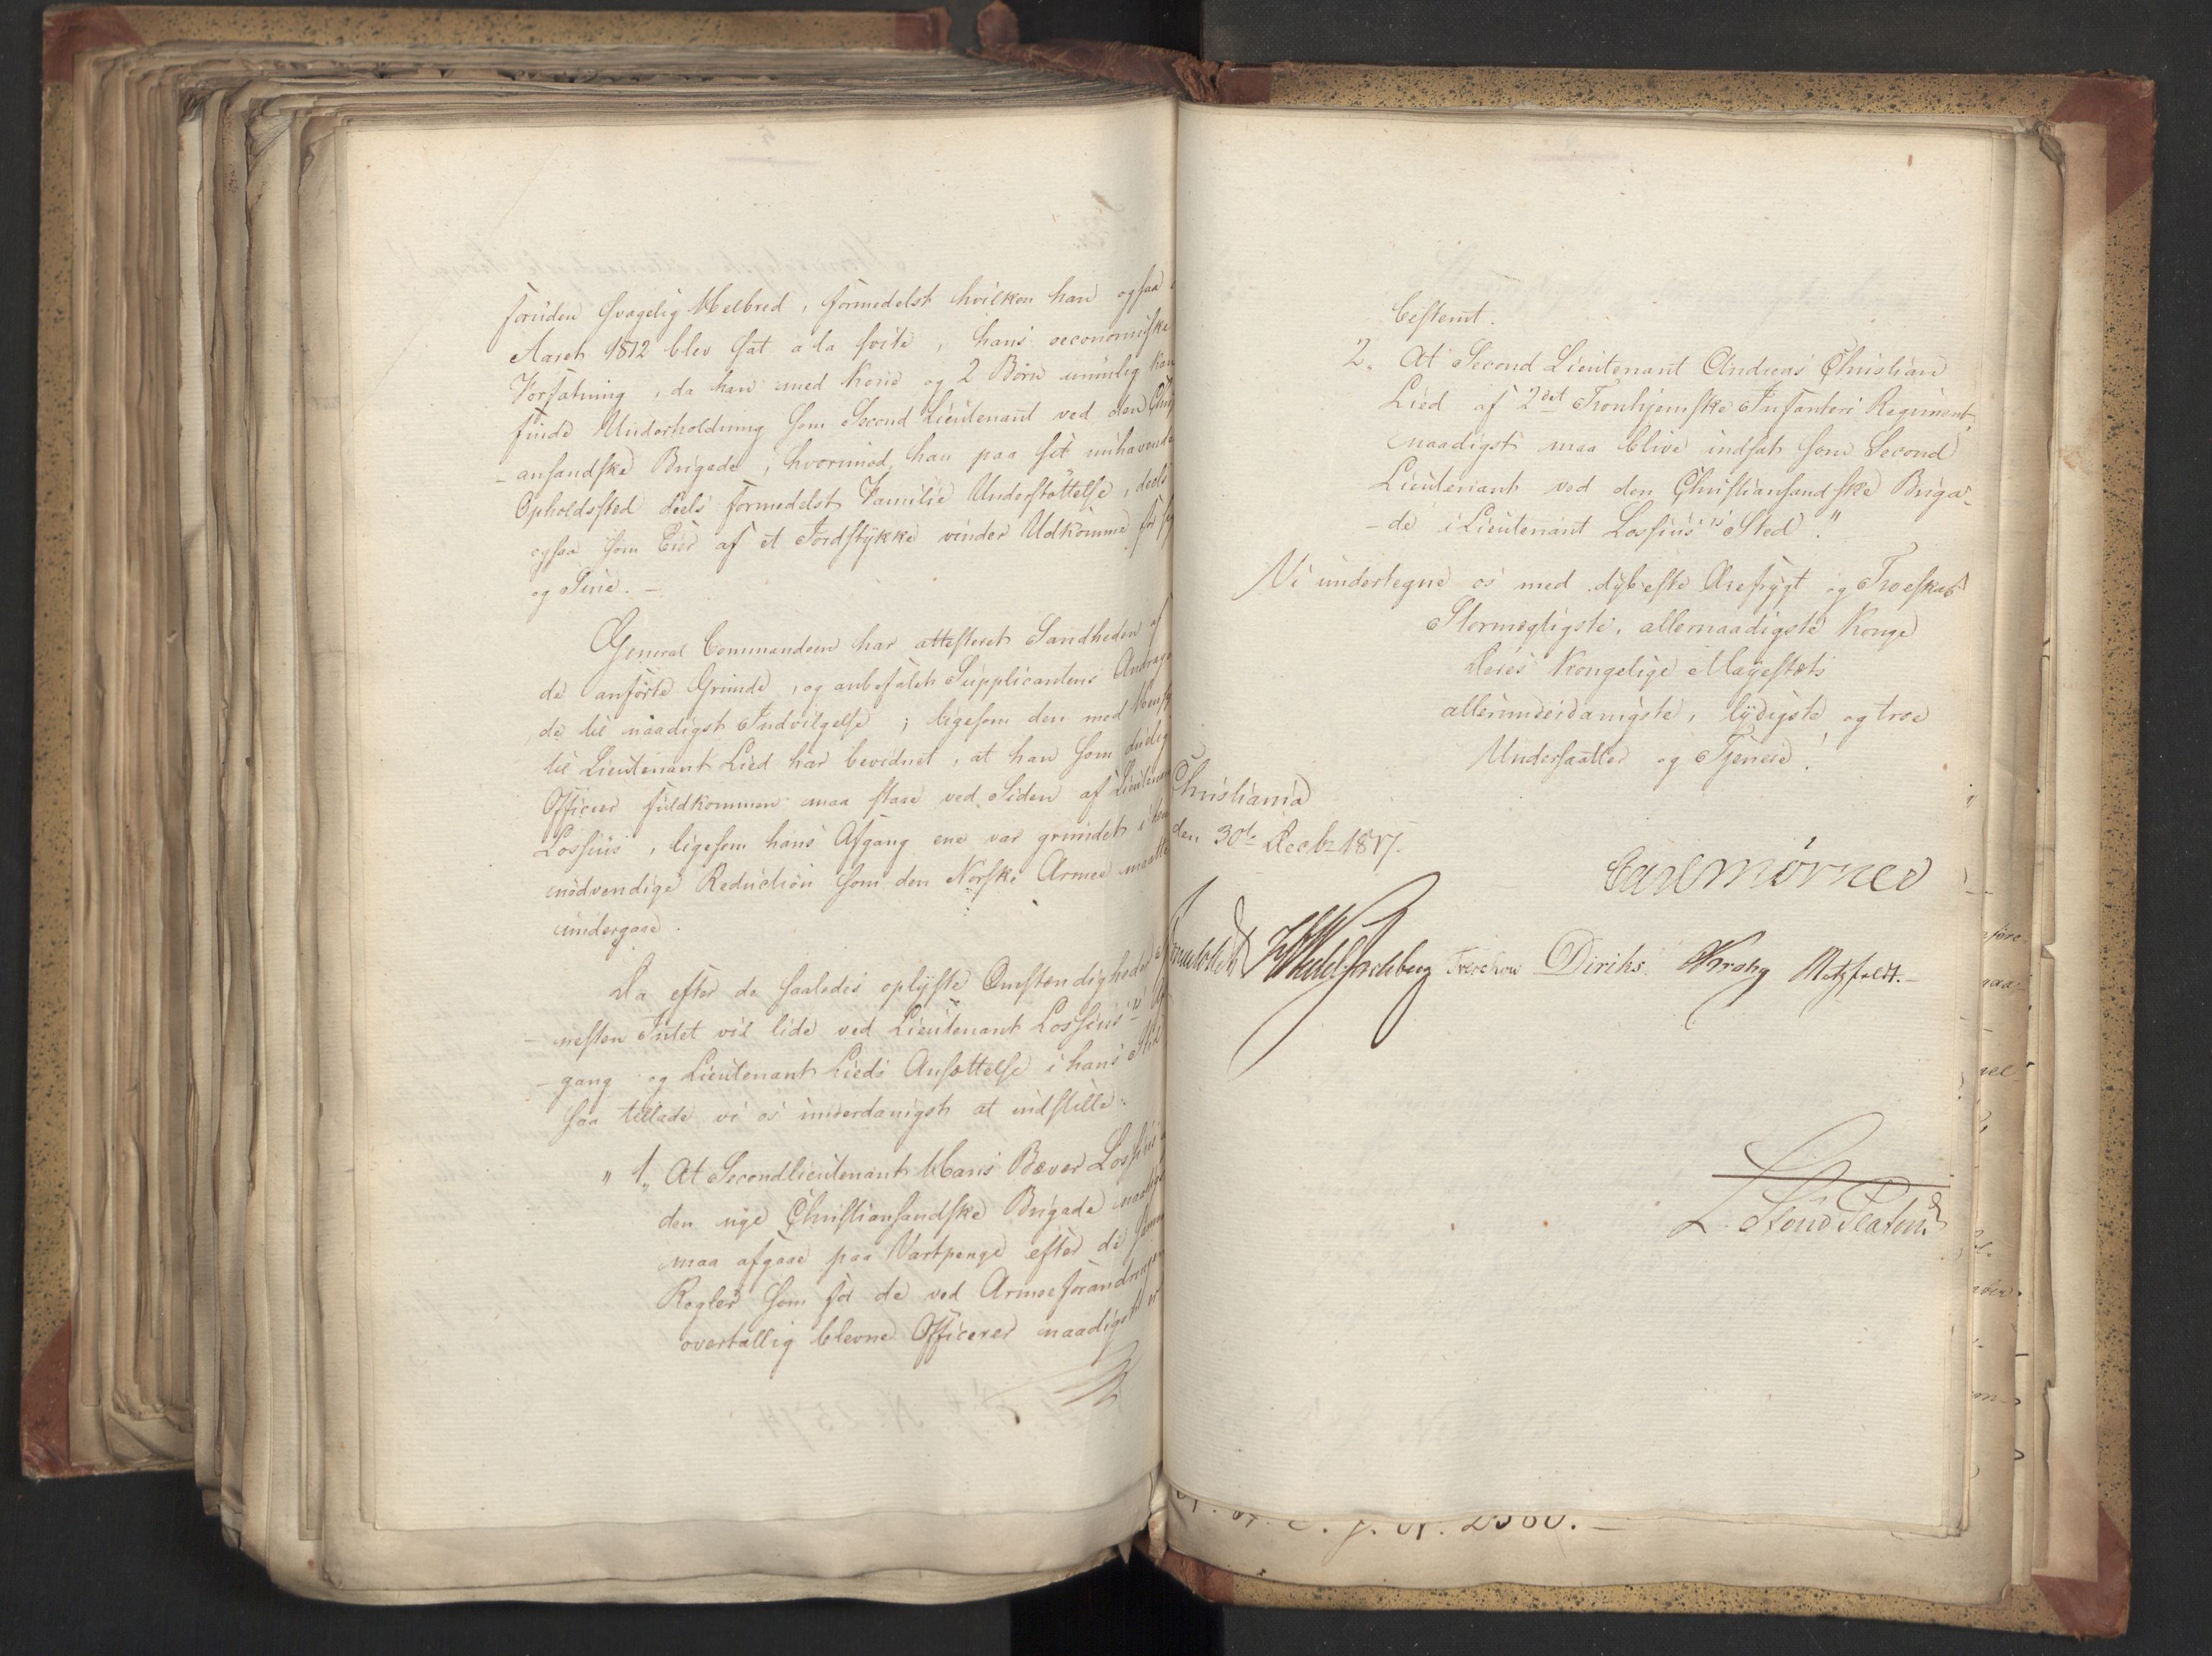 foruden svagelig Helbred, formedelst hvilken han ogsaa
Aaret 1812 blev sat a la svite, hans oeconomiske
Forfatning, da han med Kone og 2 Børn umulig kan
finde Underholdning som Second Lieutenant ved den Christi
-ansandske Brigade, hvorimod han paa sit innhavende
Opholdssted deels formedelst Familie Understøttelse, deels
ogsaa som Eier af et Jordstykke vinder Udkomme for sig
og Sine. –
General Commandoen har attesteret Sandheden af
de anførte Grunde, og anbefalet Supplicantens Andragen
de til naadigst Indvilgelse; ligesom den med Hensyn
til Lieutenant Lied har bevidnet, at han som duelig
Officier fuldkommen maa staae ved Siden af Lieutenant
Lossius, ligesom hans Afgang ene var grundet i den
nødvendige Reduction som den Norske Armee maatte
undergaae.
Da efter de saaledes oplyste Omstændigheder
nesten Intet vil lide ved Lieutenant Lossius's Af
-gang og Lieutenant Lieds Ansættelse i hans Sted
saa tillade vi os underdanigst at indstille:
" 1, At Secondlieutenant Hans Bæver Lossius
den nye Christiansandske Brigade naadigst
maa afgaae paa Vartpenge efter de samme
Regler som for de ved Armeeforandringen
overtallig blevne Officerer naadigst er
bestemt.
2. At Second Lieutenant Andreas Christian
Lied af 2det Tronhjemske Infanteri Regiment,
naadigst maa blive indsat som Second
Lieutenant ved den Christiansandske Briga-
-de i Lieutenant Lossius's Sted."
Vi undertegne os med dybeste Ærefrygt og Troeskab
Stormægtigste, allernaadigste Konge
Deres Kongelige Majestæts
allerunderdanigste, lydigste og troe
Undersaatter og Tjenere!
Christiania
den 30te Decbr 1817.
Carl Mörner
Sommerhielm HWedel Jarlsberg Treschow Diriks Krohg Motzfeldt.
L. Stoud Platou
2560.